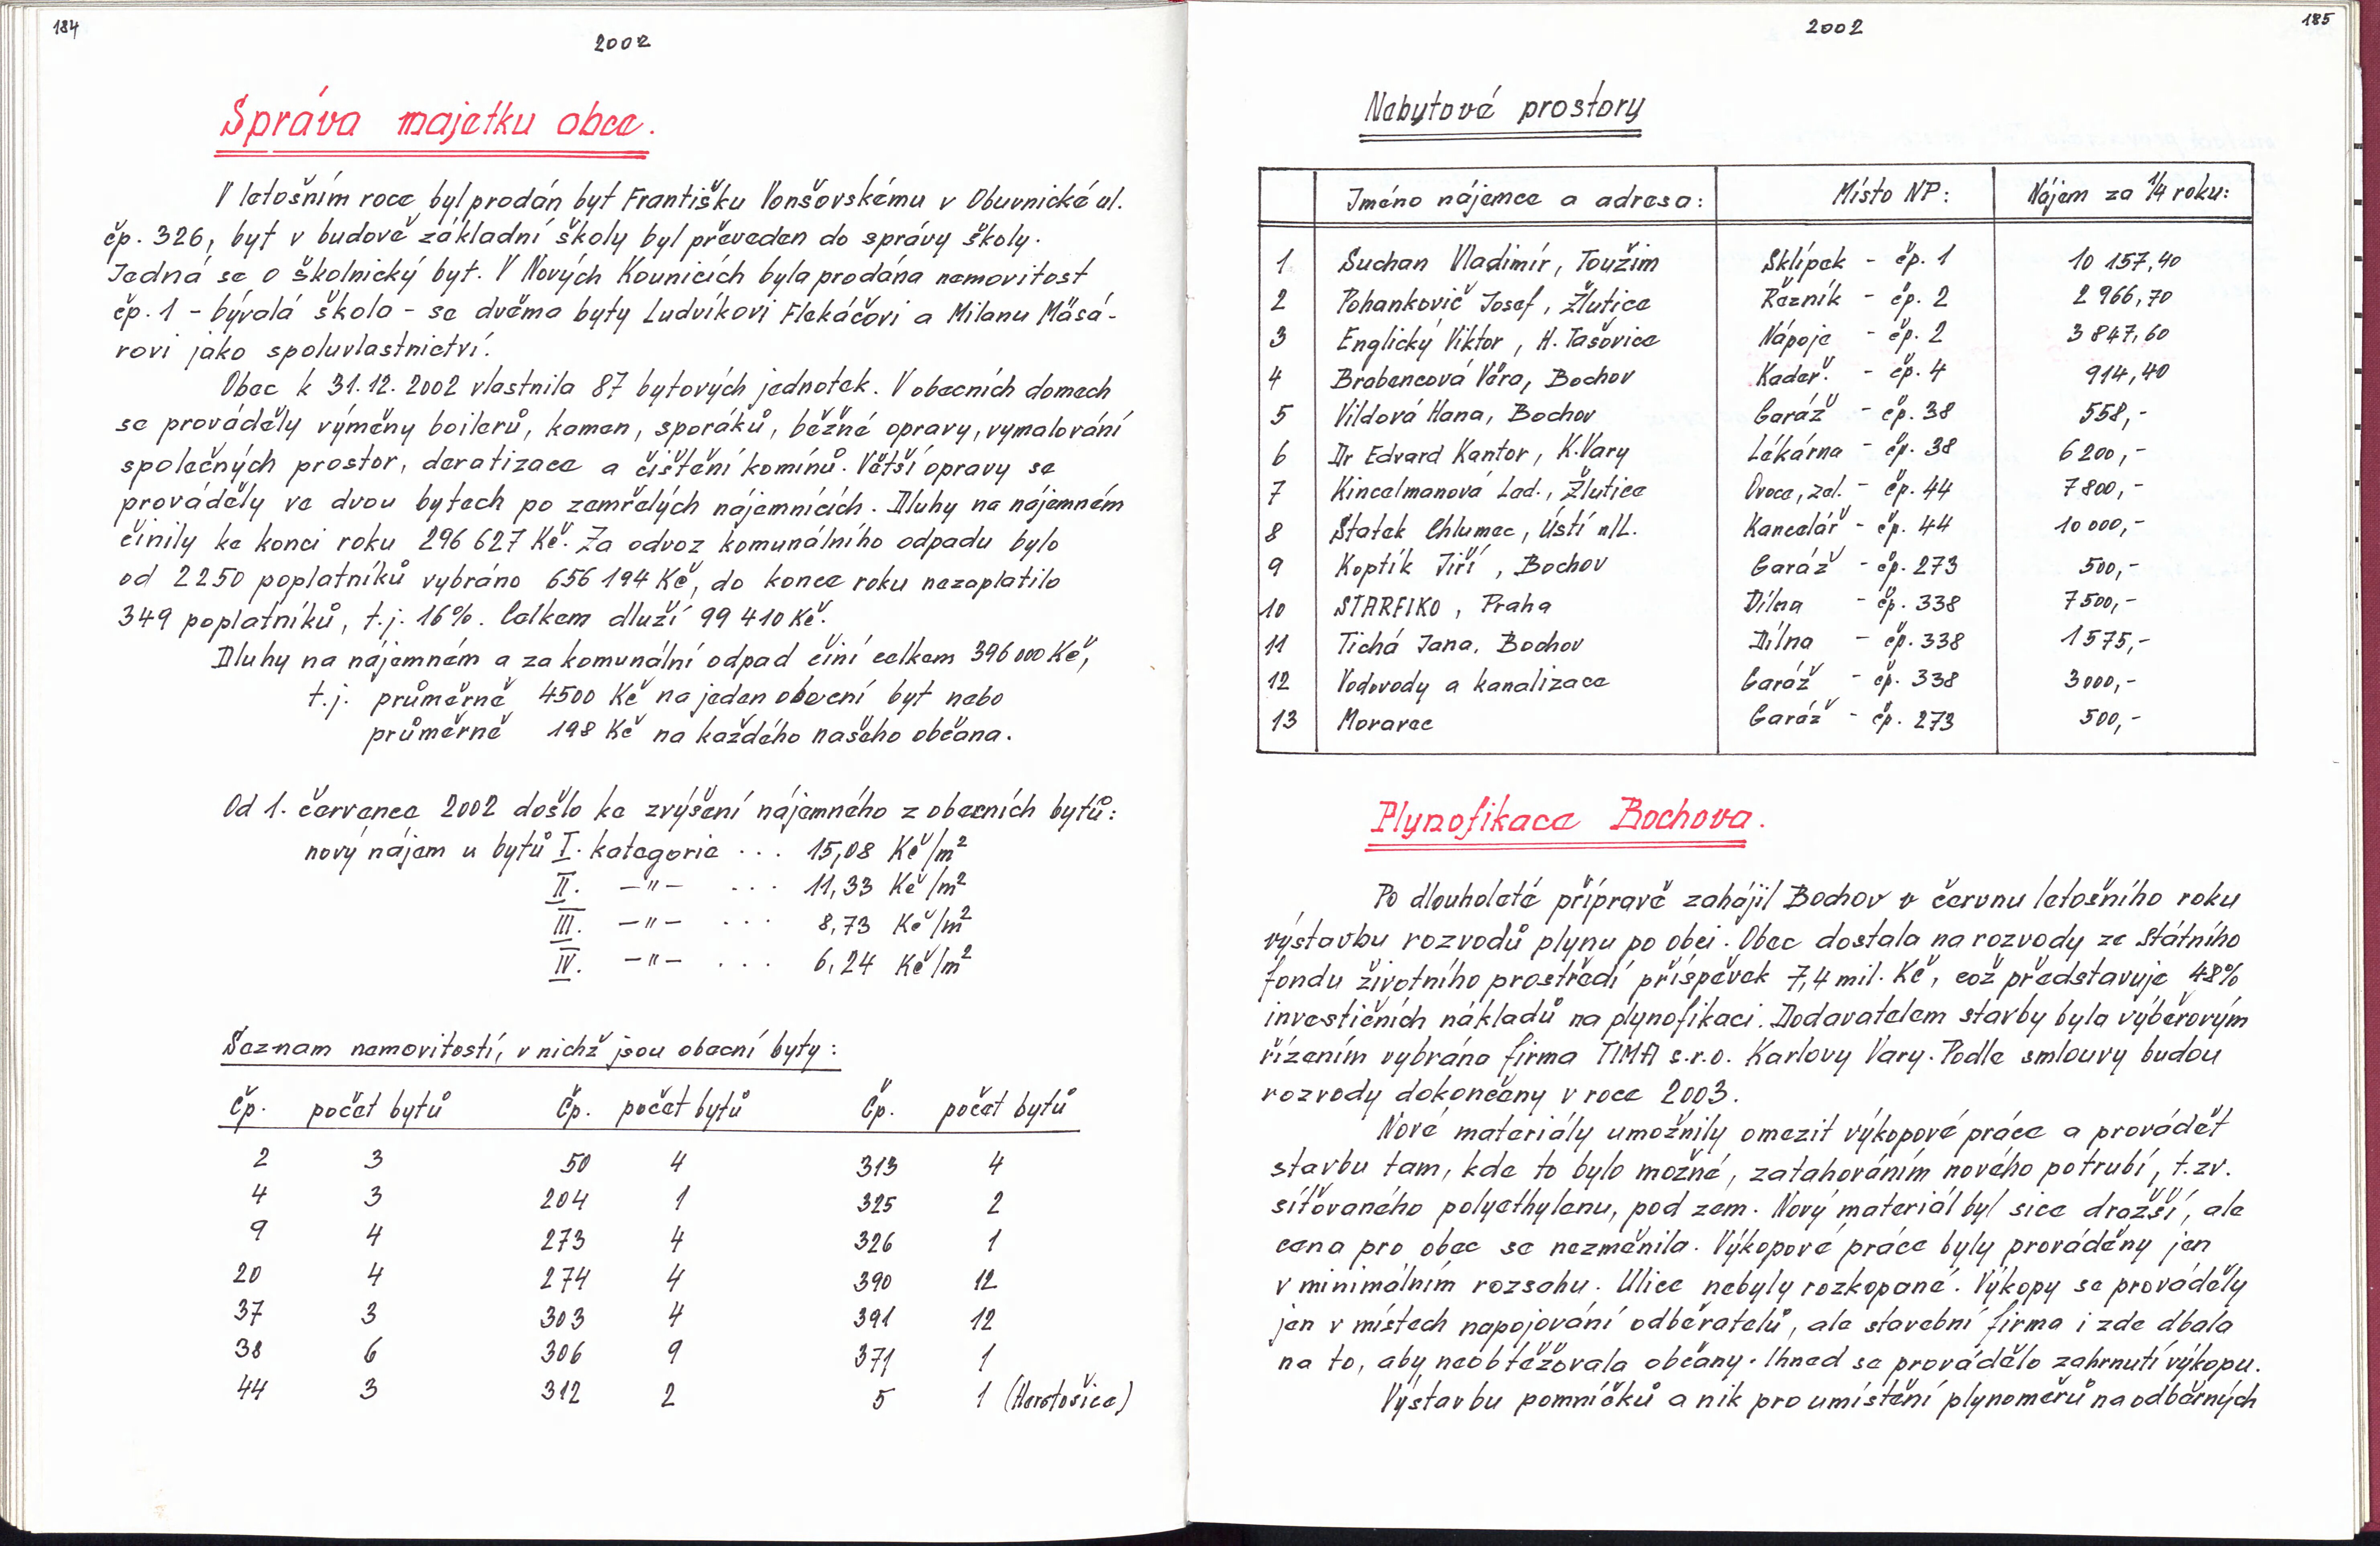 184
2002
Správa majetku obce.
V letošním roce byl prodán byt Františku Vonšovskému v Obuvnické ul.
čp. 326, byt v budově základní školy byl převeden do správy školy.
Jedná se o školnický byt. V Nových Kounicích byla prodána nemovitost
čp. 1 - bývalá škola - se dvěma byty Ludvíkovi Flekáčovi a Milanu Mäsá-
rovi jako spoluvlastnictví.
Obec k 31.12. 2002 vlastnila 87 bytových jednotek. V obecních domech
se prováděly výměny boilerů, kamen, sporáků, běžné opravy, vymalování
společných prostor, deratizace a čištění komínů. Větší opravy se
prováděly ve dvou bytech po zemřelých nájemnících. Dluhy na nájemném
činily ke konci roku 296 627 Kč. Za odvoz komunálního odpadu bylo
od 2250 poplatníků vybráno 656 194 Kč, do konce roku nezaplatilo
349 poplatníků, t.j. 16%. Celkem dluží 99 410 Kč.
Dluhy na nájemném a za komunální odpad činí celkem 396 000 Kč,
t.j. průměrně 4500 Kč na jeden obecní byt nebo
průměrně 198 Kč na každého našeho občana.
Od 1. července 2002 došlo ke zvýšení nájemného z obecních bytů:
nový nájem u bytů I. kategorie ... 15,08 Kč/m²
II. -"- ... 11,33 Kč/m²
III. -"- ... 8,73 Kč/m²
IV. -"- ... 6,24 Kč/m²
Seznam nemovitostí, v nichž jsou obecní byty:
Čp. počet bytů Čp. počet bytů Čp. počet bytů
2 3 50 4 313 4
4 3 204 1 325 2
9 4 273 4 326 1
20 4 274 4 390 12
37 3 303 4 391 12
38 6 306 9 371 1
44 3 312 2 5 1 (Herstošice)
185
2002
Nebytové prostory
Jméno nájemce a adresa: Místo NP: Nájem za 1/4 roku:
1 Suchan Vladimír, Toužim Sklípek - čp. 1 10 157,40
2 Pohankovič Josef, Žlutice Řezník - čp. 2 2 966,70
3 Englický Viktor, H. Tašovice Nápoje - čp. 2 3 847,60
4 Brabencová Věra, Bochov Kadeř. - čp. 4 914,40
5 Vildová Hana, Bochov Garáž - čp. 38 558,-
6 Dr Edvard Kantor, K.Vary Lékárna - čp. 38 6 200,-
7 Kincelmanová Lad., Žlutice Ovoce, zel. - čp. 44 7 800,-
8 Statek Chlumec, Ústí n/L. Kancelář - čp. 44 10 000,-
9 Koptík Jiří, Bochov Garáž - čp. 273 500,-
10 STARFIKO, Praha Dílna - čp. 338 7 500,-
11 Tichá Jana, Bochov Dílna - čp. 338 1 575,-
12 Vodovody a kanalizace Garáž - čp. 338 3 000,-
13 Moravec Garáž - čp. 273 500,-
Plynofikace Bochova.
Po dlouholeté přípravě zahájil Bochov v červnu letošního roku
výstavbu rozvodů plynu po obci. Obec dostala na rozvody ze Státního
fondu životního prostředí příspěvek 7,4 mil. Kč, což představuje 48%
investičních nákladů na plynofikaci. Dodavatelem stavby byla výběrovým
řízením vybrána firma TIMA s.r.o. Karlovy Vary. Podle smlouvy budou
rozvody dokončeny v roce 2003.
Nové materiály umožnily omezit výkopové práce a provádět
stavbu tam, kde to bylo možné, zatahováním nového potrubí, t.zv.
síťovaného polyethylenu, pod zem. Nový materiál byl sice dražší, ale
cena pro obec se nezměnila. Výkopové práce byly prováděny jen
v minimálním rozsahu. Ulice nebyly rozkopané. Výkopy se prováděly
jen v místech napojování odběratelů, ale stavební firma i zde dbala
na to, aby neobtěžovala občany. Ihned se provádělo zahrnutí výkopu.
Výstavbu pomníčků a nik pro umístění plynoměrů na odběrných